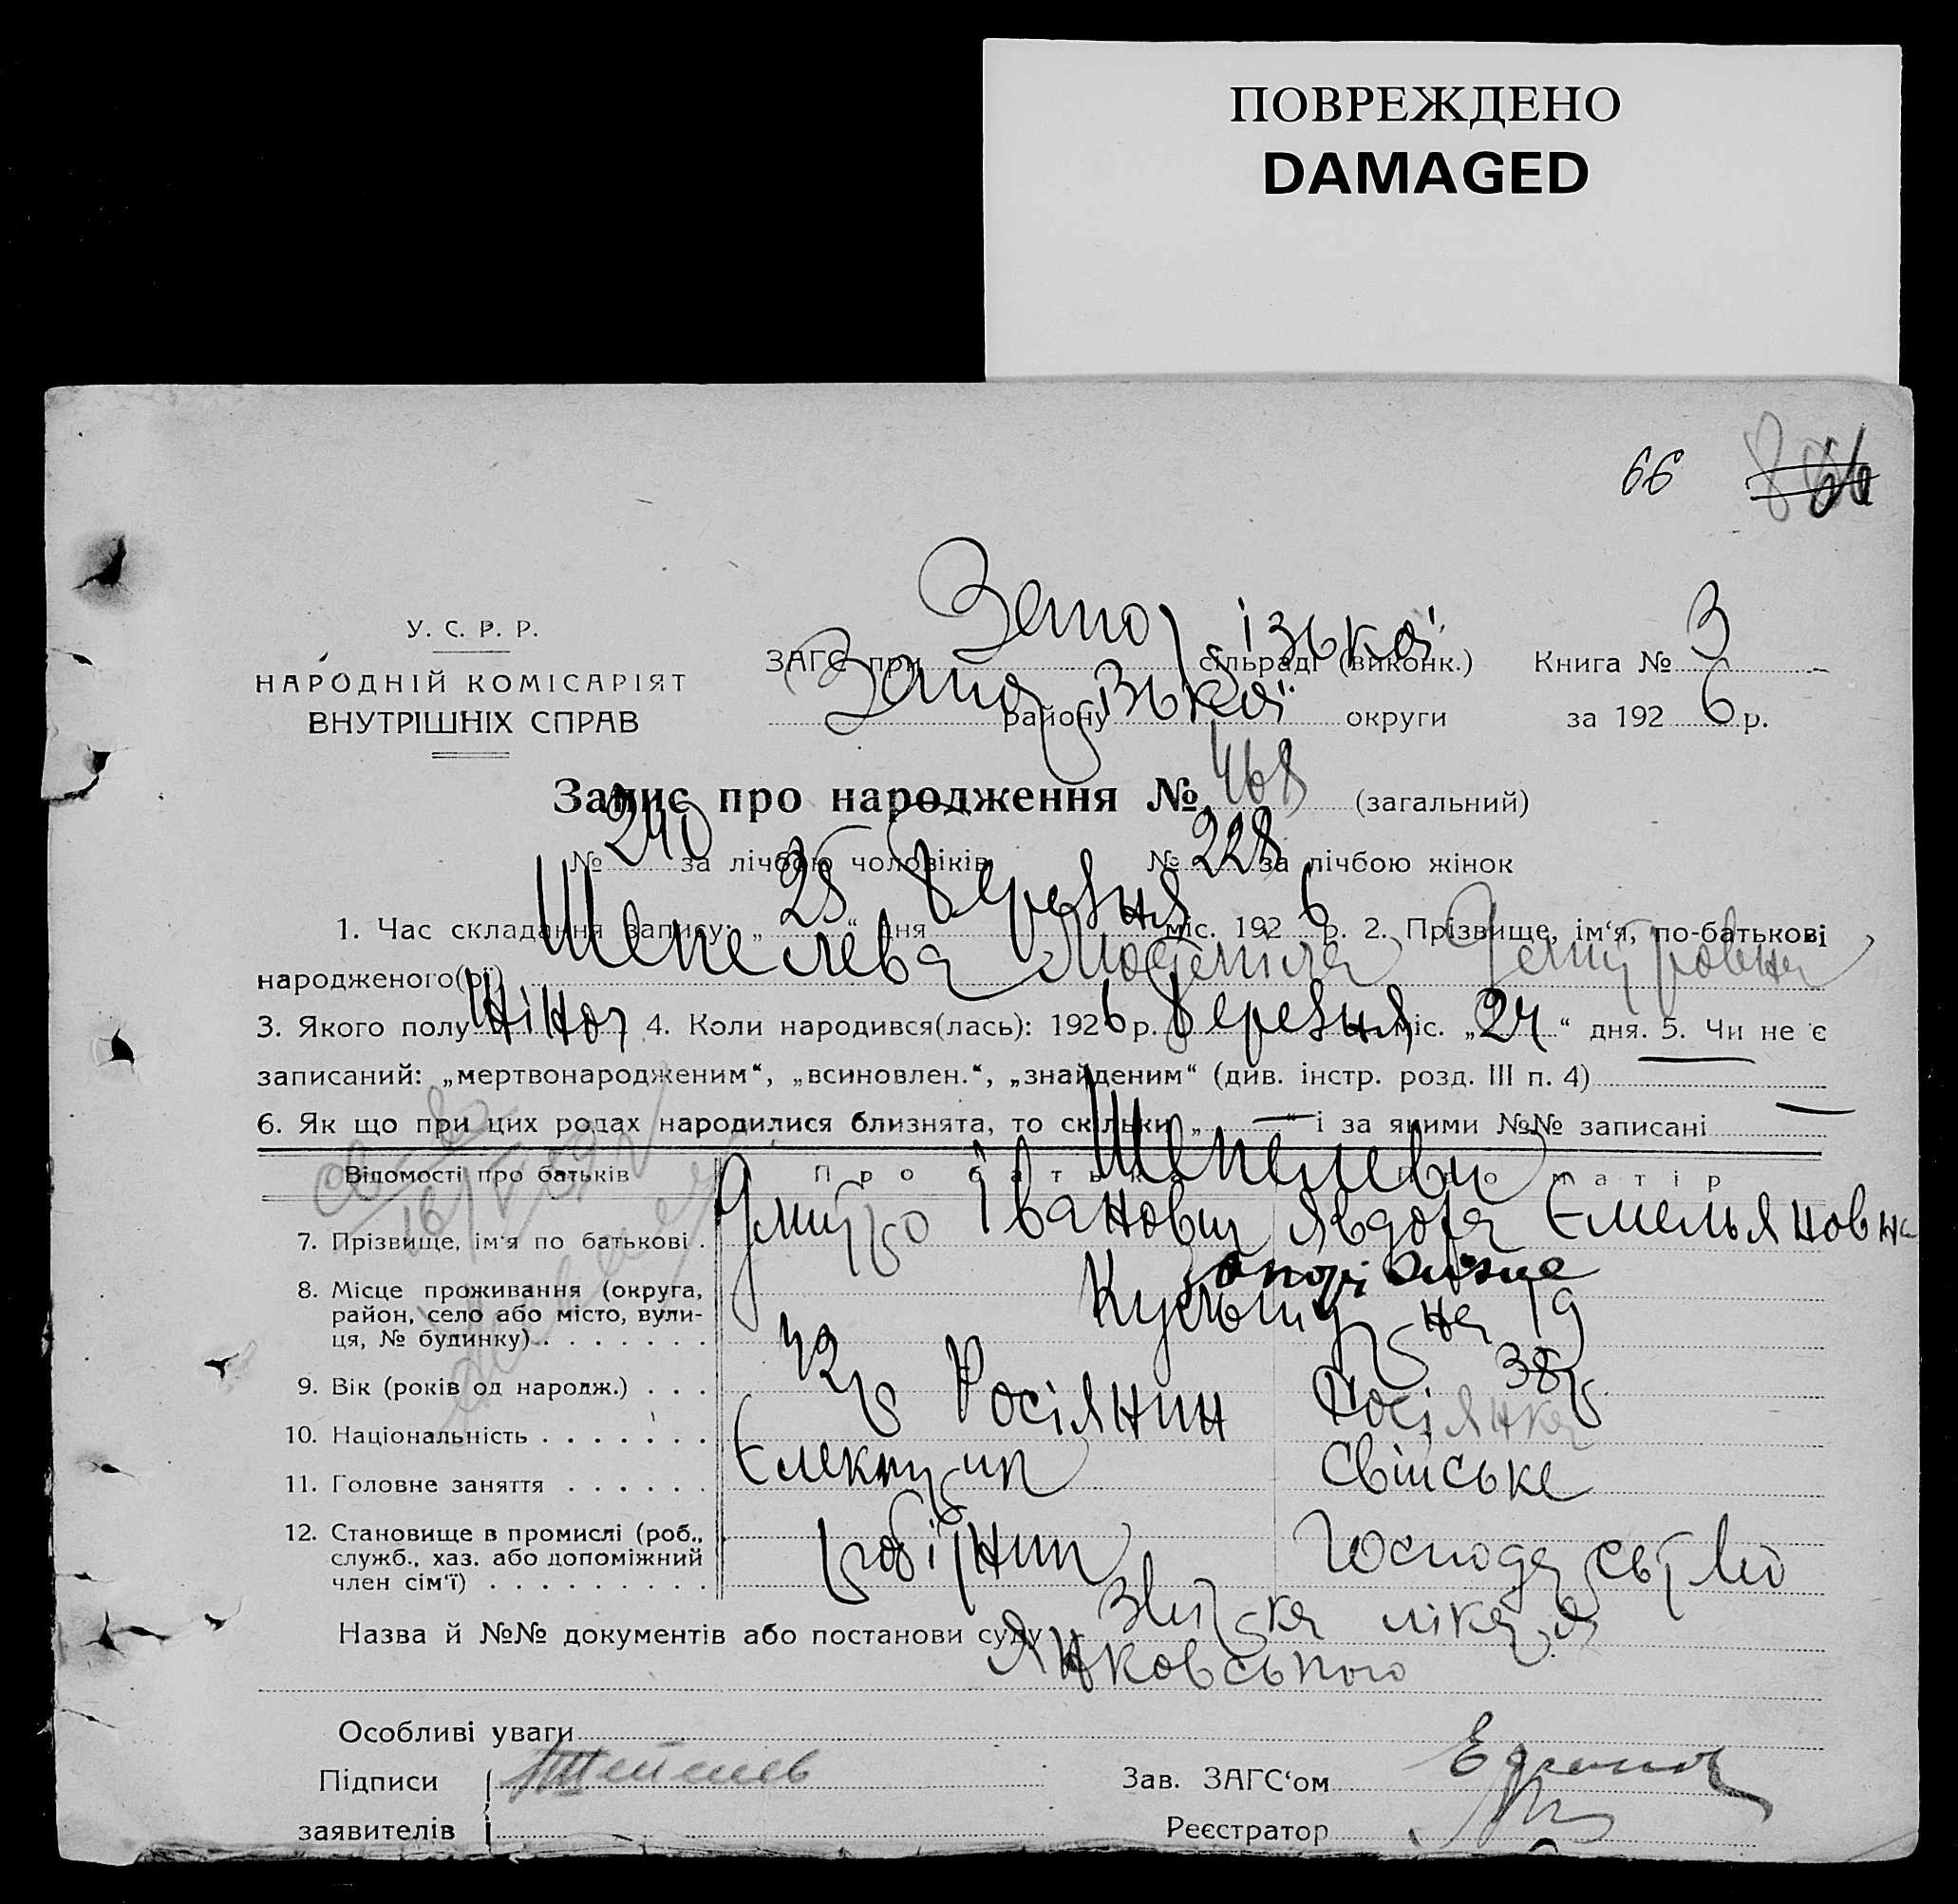 ПОВРЕЖДЕНО
DAMAGED
66
У. С. Р. Р.
НАРОДНІЙ КОМІСАРІЯТ
ВНУТРІШНІХ СПРАВ
ЗАГС при Запорізької сільраді (виконк.) Книга № 3
Запорізької району округи за 1926 р.
Запис про народження № 468 (загальний)
№ 240 за лічбою чоловіків № 228 за лічбою жінок
1. Час складання запису: „25“ дня березня міс. 1926 р. 2. Прізвище, ім‘я, по-батькові
народженого(рї) Шепелева Людміла
3. Якого полу жіноч 4. Коли народився(лась): 1926 р. березня міс. „24“ дня. 5. Чи не є
записаний: „мертвонародженим“, „всиновлен.“, „знайденим“ (див. інстр. розд. III п. 4) —
6. Як що при цих родах народилися близнята, то скільки „—“ і за якими №№ записані —
Відомості про батьків Про батька Про матір
Шепелеви
7. Прізвище, ім‘я по батькові . Дмитро Іванович Явдоха Ємельяновна
8. Місце проживання (округа, район, село або місто, вулиця, № будинку) . . . . . . . Запоріжже
на 19
9. Вік (років од народж.) . . . 42 р 38 р.
10. Національність . . . . . . . Росіянин Росіянка
11. Головне заняття . . . . . . Свійське
12. Становище в промислі (роб., служб., хаз. або допоміжний член сім‘ї) . . . . . . . . . робітник
Назва й №№ документів або постанови суду лікаря
Янковського
Особливі уваги
Підписи Шепелев Зав. ЗАГС‘ом
заявителів Реєстратор